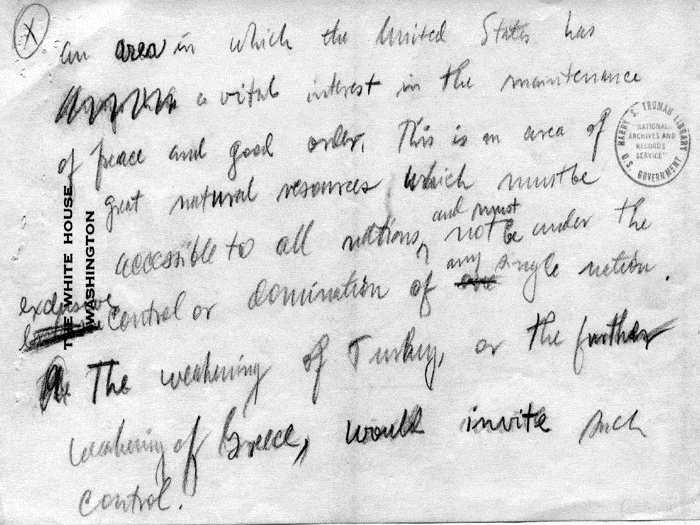 X
an area in which the United States has
a vital interest in the maintenance
of peace and good order. This is an area of
great natural resources which must be
accessible to all nations, and must not be under the
exclusive control or domination of any single nation.
The weakening of Turkey, or the further
weakening of Greece, would invite such
control.
THE WHITE HOUSE
WASHINGTON
HARRY S. TRUMAN LIBRARY
"NATIONAL
ARCHIVES AND
RECORDS
SERVICE"
U.S. GOVERNMENT